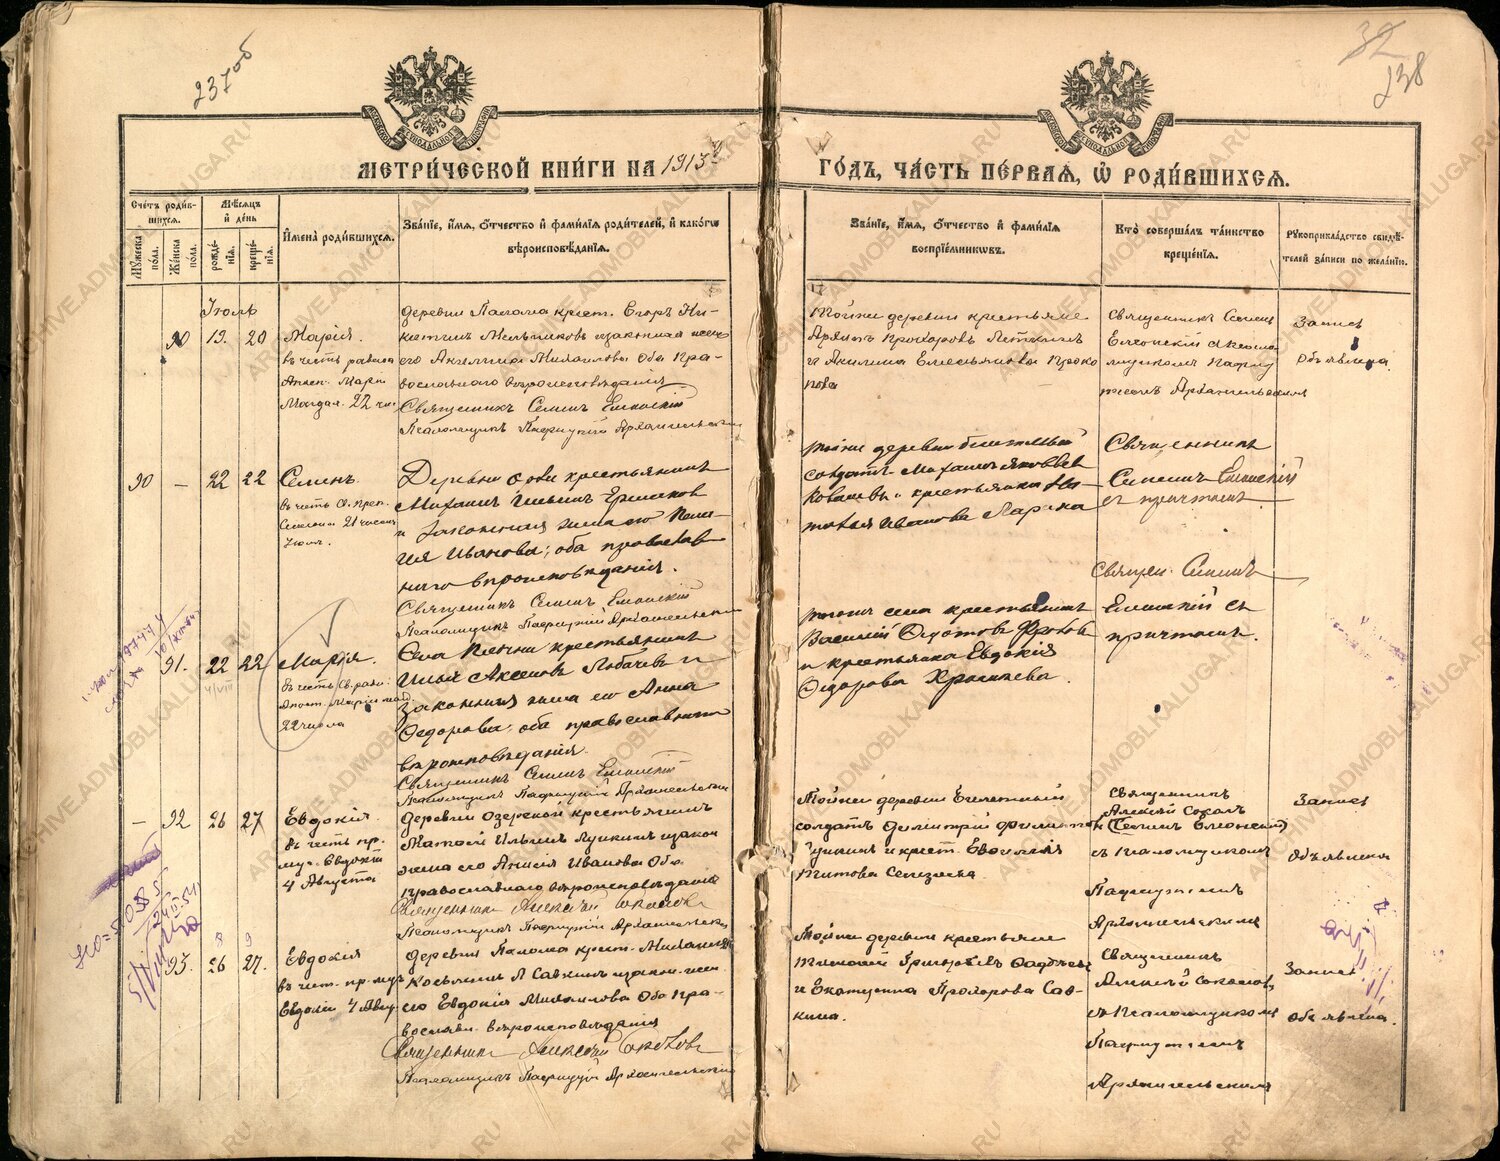 237 об
32
238
МЕТРИ́ЧЕСКОЙ КНИ́ГИ НА 1913 г.
ГО́ДЪ, ЧА́СТЬ ПЕ́РВАЯ, Ѽ РОДИ́ВШИХСЯ.
Сче́тъ роди́в-
шихся.
Му́жеска по́ла.
Же́нска по́ла.
Мѣ́сяцъ
и҆ де́нь
рожде́-
нїя.
креще́-
нїя.
И҆мена̀ роди́вшихся.
Зва́нїе, и҆́мя, ѻ҆́тчество и҆ фами́лїя роди́телей, и҆ како́гѡ
вѣроисповѣ́данїя.
Зва́нїе, и҆́мя, ѻ҆́тчество и҆ фами́лїя
воспрїе́мникѡвъ.
Кто̀ соверша́лъ та́инство
креще́нїя.
Рꙋкоприкла́дство свидѣ́-
телей за́писи по жела́нїю.
Іюль
90 19. 20
Марія.
въ честь равноа
Апост. Маріи
Магдал. 22 числ
деревни Палома крест. Егоръ Ни-
китинъ Мельниковъ и законная жена
его Акилина Михаилова Оба пра-
вославнаго вѣроисповѣданія
Священникъ Семенъ Елеонскій
Псаломщикъ Пафнутій Архангельскій
Тойже деревни крестьяне
Прохоровъ
и Акилина Емельянова Проко
пова
Священникъ Семенъ
Елеонскій съ псало-
мщикомъ Пафну
тіемъ Архангельскимъ
Запись
объявлена.
90 — 22 22
Семенъ.
въ честь пр. преп.
Семеона 21 числа
Іюля.
Деревни крестьянинъ
Михаилъ Ильинъ Ермаков
и законная жена его Пела-
гія Иванова; оба православ
наго вѣроисповѣданія.
Священникъ Семенъ Елеонскій
Псаломщикъ Пафнутій Архангельскій
тойже деревни билетный
солдатъ Михаилъ Яковлев
Ковалевъ и крестьянка На-
талья Иванова Ларина
Священникъ
Симеонъ Елеонскій
съ причтомъ
91. 22 22
4/VIII
Марія.
въ честь св. равн.
Апост. Маріи
22 числа
Села крестьянинъ
Илья Аксеновъ Лобачевъ и
законная жена его Анна
Федорова; оба православнаго
вѣроисповѣданія.
Священникъ Семенъ Елеонскій
Псаломщикъ Пафнутій Архангельскій
тогоже села крестьянинъ
Василій Федотовъ Фроловъ
и крестьянка Евдокія
Федорова
Священ. Симеонъ
Елеонскій съ
причтомъ.
— 92 26 27
Евдокія.
въ честь пр.
муч. Евдокіи
4 Августа
деревни Озерской крестьянинъ
Матфей Ильинъ Лункинъ и закон
жена его Анисія Иванова Оба
православнаго вѣроисповѣданія
Священникъ Алексѣй Соколовъ
Псаломщикъ Пафнутій Архангельскій
Тойже деревни билетный
солдатъ Димитрій Филиппов
и крест. Евфимія
Титова Селезнева
Священникъ
Алексѣй Соколъ
(Семенъ Елеонскій)
съ псаломщикомъ
Пафнутіемъ
Архангельскимъ
Запись
объявлена
93. 26 27.
8 9
Евдокія
въ чест. пр. муч
Евдокіи 4 Авгу
деревни Палома крест. Михаилъ
Косьминъ Савкинъ и закон. жен.
его Евдокія Михаилова Оба пра-
вославн. вѣроисповѣданія
Священникъ Алексѣй Соколовъ
Псаломщикъ Пафнутій Архангельскій
Тойже деревни крестьяне
Тимофей Григорьевъ
и Екатерина Прохорова Сав-
кина.
Священникъ
Алексѣй Соколов,
съ псаломщикомъ
Пафнутіемъ
Архангельскимъ
Запись
объявлена.
ARCHIVE.ADMOBLKALUGA.RU